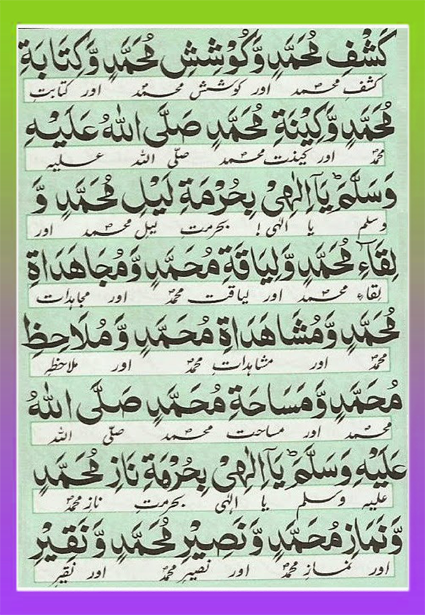 كَشْفِ مُحَمَّدٍ وَّكُوْشِشِ مُحَمَّدٍ وَّكِتَابَةِ
کشف محمدؐ اور کوشش محمدؐ اور کتابت
مُحَمَّدٍ وَّكِيْنَةِ مُحَمَّدٍ صَلَّى اللهُ عَلَيْهِ
محمدؐ اور کینت محمدؐ صلی اللہ علیہ
وَسَلَّمَ يَآ اِلٰهِىْ بِحُرْمَةِ لَيْلِ مُحَمَّدٍ وَّ
وسلم یا الٰہی! بحرمت لیل محمدؐ اور
لِقَآءِ مُحَمَّدٍ وَّلِيَاقَةِ مُحَمَّدٍ وَّمُجَاهَدَاةِ
لقاء محمدؐ اور لیاقت محمدؐ اور مجاہدات
مُحَمَّدٍ وَّمُشَاهَدَاةِ مُحَمَّدٍ وَّمُلَاحِظِ
محمدؐ اور مشاہدات محمدؐ اور ملاحظہ
مُحَمَّدٍ وَّمَسَاحَةِ مُحَمَّدٍ صَلَّى اللهُ
محمدؐ اور مساحت محمدؐ صلی اللہ
عَلَيْهِ وَسَلَّمَ يَآ اِلٰهِىْ بِحُرْمَةِ نَازِ مُحَمَّدٍ
علیہ وسلم یا الٰہی بحرمت ناز محمدؐ
وَّنَمَازِ مُحَمَّدٍ وَّنَصِيْرِ مُحَمَّدٍ وَّنَقِيْرِ
اور نماز محمدؐ اور نصیر محمدؐ اور نقیر